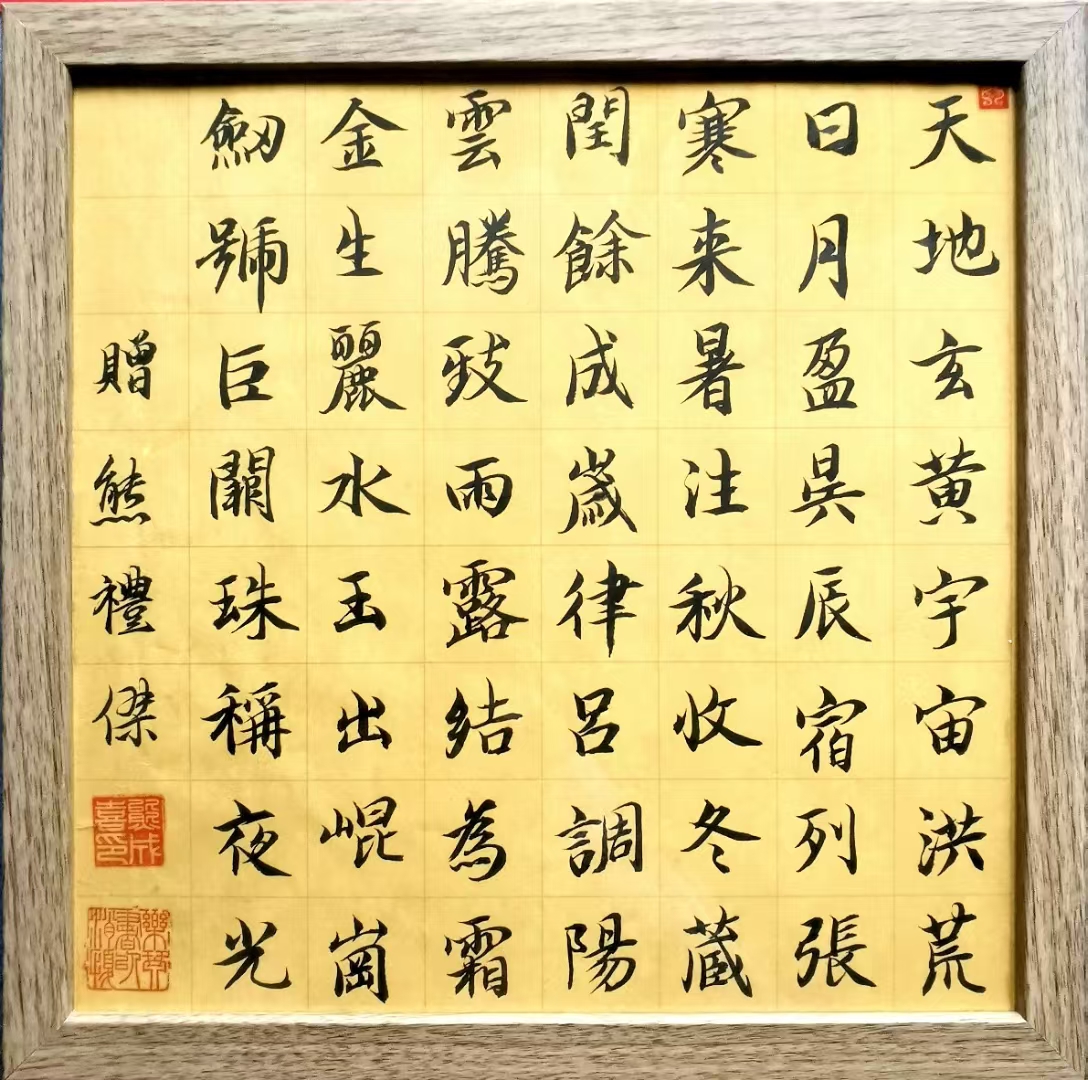 天地玄黄宇宙洪荒
日月盈昃辰宿列張
寒来暑注秋收冬藏
閏餘成歲律呂調陽
雲騰致雨露結為霜
金生麗水玉出崐崗
劒號巨闕珠稱夜光
贈熊禮傑
成喜印
樂琴書以消憂